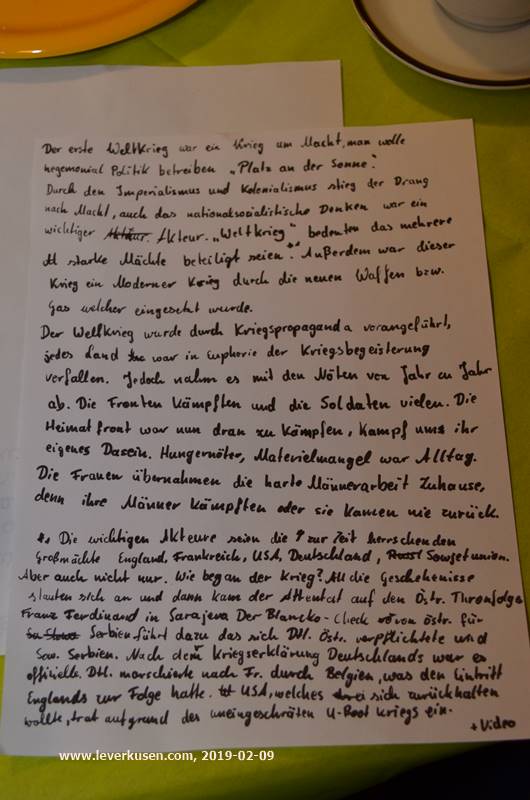 Der erste Weltkrieg war ein Krieg um Macht, man wolle
hegemonial Politik betreiben „Platz an der Sonne“.
Durch den Imperialismus und Kolonialismus stieg der Drang
nach Macht, auch das nationalsocialistische Denken war ein
wichtiger Akteur. „Weltkrieg“ bedeuten das mehrere
starke Mächte beteiligt seien. Außerdem war dieser
Krieg ein Moderner Krieg durch die neuen Waffen bzw.
Gas welcher eingesetzt wurde.
Der Weltkrieg wurde durch Kriegspropaganda vorangeführt,
jedes Land war in Euphorie der Kriegsbegeisterung
verfallen. Jedoch nahm es mit den Nöten von Jahr zu Jahr
ab. Die Fronten kämpften und die Soldaten vielen. Die
Heimatfront war nun dran zu kämpfen, Kampf ums ihr
eigenes Dasein. Hungernöter, Materielmangel war Alltag.
Die Frauen übernahmen die harte Männerarbeit Zuhause,
denn ihre Männer kämpften oder sie kamen nie zurück.
Die wichtigen Akteure seien die zur Zeit herrschenden
Großmächte England, Frankreich, USA, Deutschland, Sowjetunion.
Aber auch nicht nur. Wie began der Krieg? All die Geschehenisse
stauten sich an und dann kam der Attentat auf den Östr. Thronfolge
Franz Ferdinand in Sarajevo Der Blancko-Check von östr. für
Serbien führt dazu das sich Dtl. Östr. verpflichtete und
Sow. Serbien. Nach dem Kriegserklärung Deutschlands war es
officielle. Dtl. marschierte nach Fr. durch Belgien, was den Eintritt
Englands zur Folge hatte. USA, welches sich zurückhalten
wollte, trat aufgrund des uneingeschräten U-Boot Kriegs ein.
+ Video
www.leverkusen.com, 2019-02-09